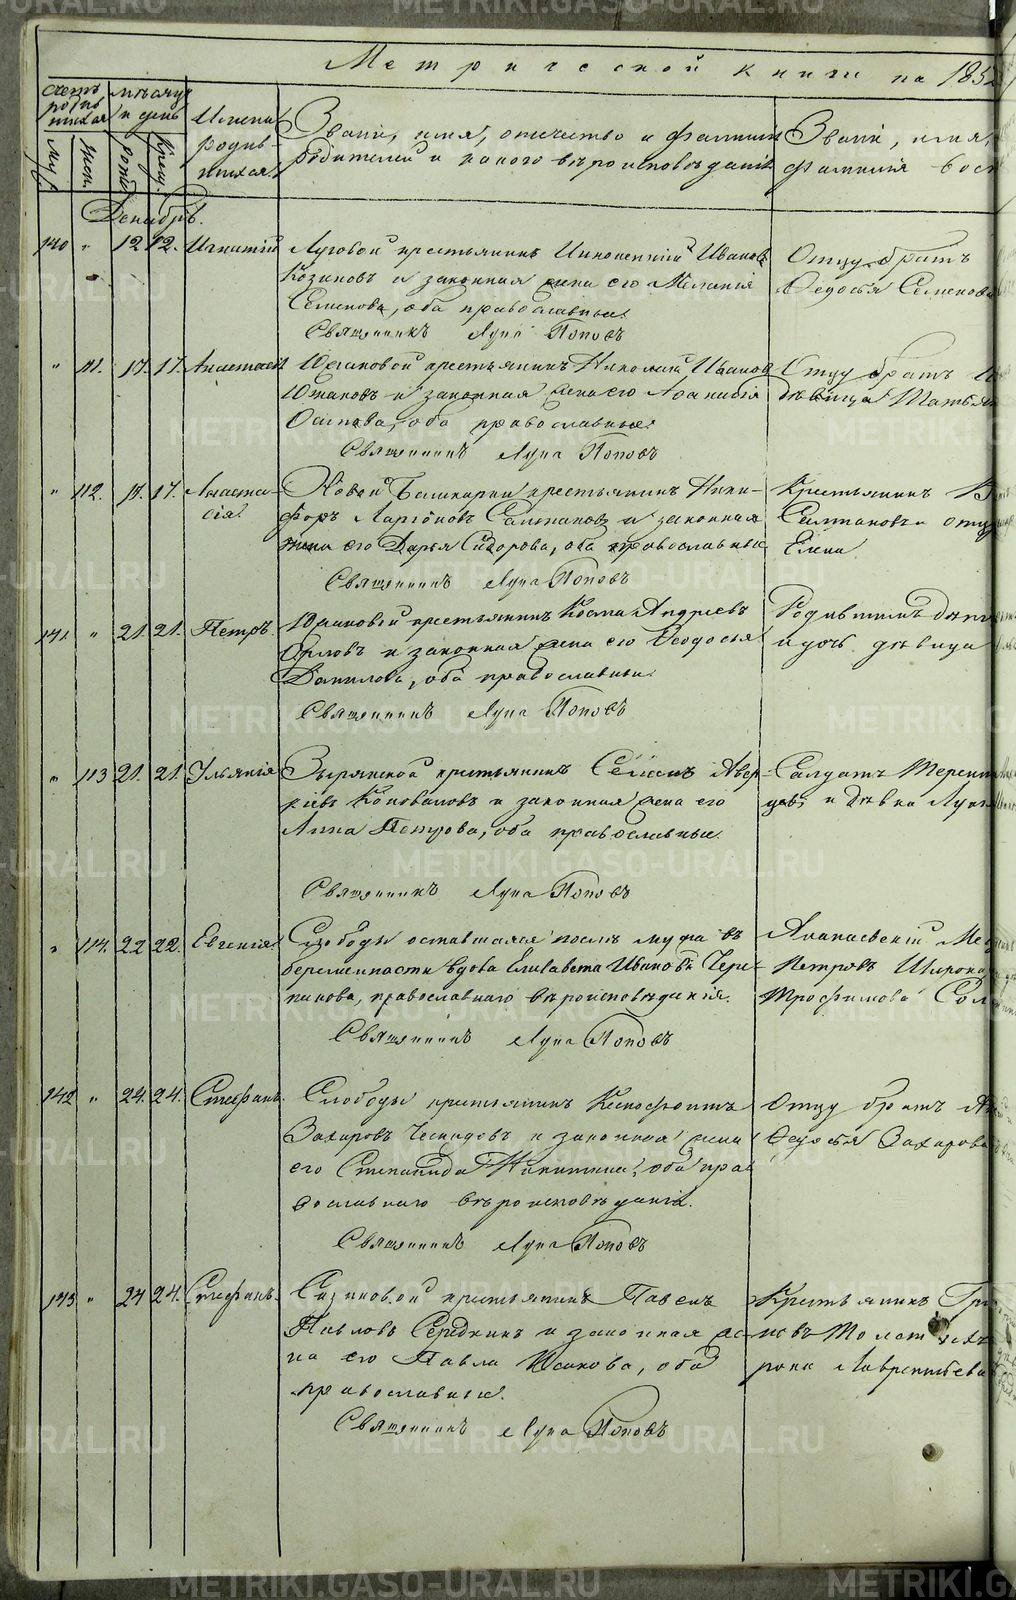 Метрической книги на 185
Счетъ родившихся
мѣсяцъ и день
Имена родившихся.
Званіе, имя, отчество и фамилія родителей и какого вѣроисповѣданія
Званіе, имя,
фамилія восп
муж. жен. рожд. крещ.
Декабрь.
140 " 12 12. Игнатій
Луговой крестьянинъ Иннокентій Ивановъ
Козиковъ и законная жена его Меланія
Семенова, оба православные.
Священникъ Лука Поповъ
Отцу братъ
Ѳедосья Семенова
" 111. 17. 17. Анастасія
Южаковой крестьянинъ Николай Ивановъ
Южаковъ и законная жена его
Осипова, оба православные.
Священникъ Лука Поповъ
Отцу братъ
дѣвица Татьян
" 112. 17. 17. Анаста-
сія.
Новой Башкарки крестьянинъ Ники-
форъ Ларіоновъ Салтановъ и законная
жена его Дарья Сидорова, оба православные
Священникъ Лука Поповъ
Крестьянинъ
Салтановъ и отцу
Елена
141. " 21. 21. Петръ
Южаковой крестьянинъ Косма Андреевъ
Орловъ и законная жена его Ѳеодосья
Данилова, оба православные.
Священникъ Лука Поповъ
Родившимъ
и дочь дѣвица
" 113 21. 21. Ульянія
Зырянской крестьянинъ Семенъ Авер-
кіевъ Коноваловъ и законная жена его
Анна Петрова, оба православные.
Священникъ Лука Поповъ
Салдатъ Терентій
цовъ и дѣвка Лук
" 114. 22 22. Евгенія.
Слободы оставшаяся послѣ мужа въ
беременности вдова Елисавета Иванова Чере-
панова, православнаго вѣроисповѣданія.
Священникъ Лука Поповъ
Алапаевскій
Петровъ Широко
Трофимова Сол
142 " 24. 24. Стефанъ.
Слободы крестьянинъ Ксенофонтъ
Захаровъ Ческидовъ и законная жена
его Степанида Никитина, оба пра-
вославнаго вѣроисповѣданія.
Священникъ Лука Поповъ
Отцу братъ
Ѳедосья Захарова
143 " 24 24. Стефанъ.
Сизиковой крестьянинъ Павелъ
Павловъ Середкинъ и законная же-
на его Павла Исакова, оба
православные.
Священникъ Лука Поповъ
Крестьянинъ Гри
Лаврентьева
METRIKI.GASO-URAL.RU